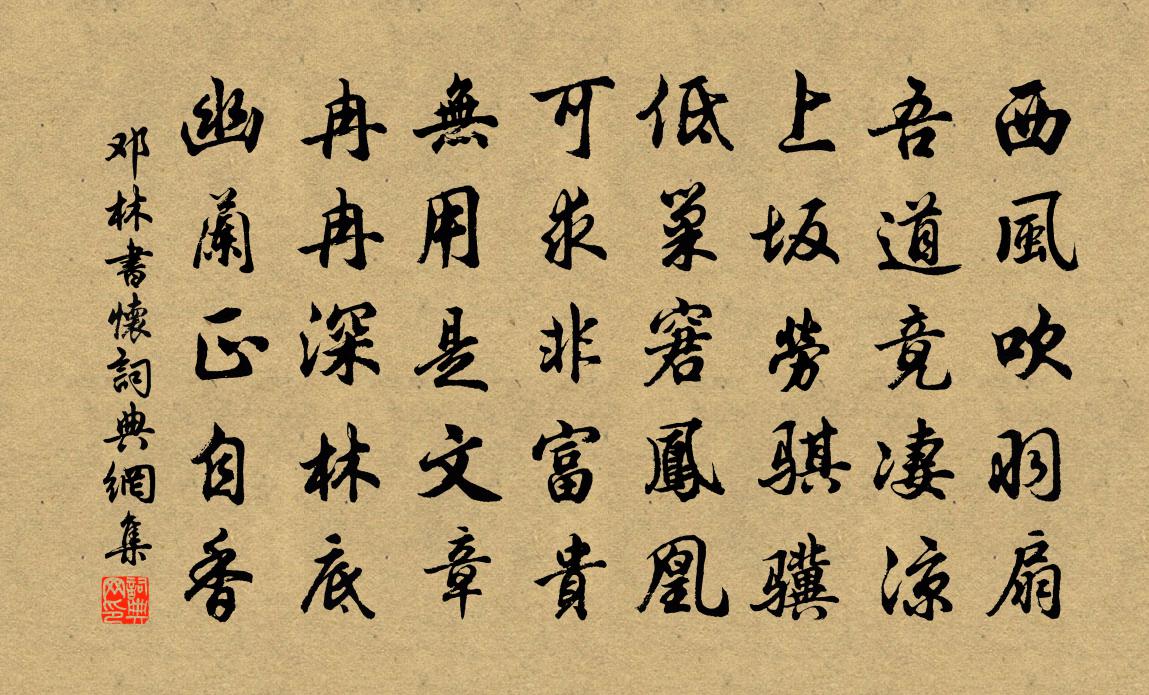 西風吹羽扇
吾道竟凄涼
上坂勞骐驥
低巢窘鳳凰
可求非富貴
無用是文章
冉冉深林底
幽蘭正自香
邓林書懷詞典網集
詞典网印